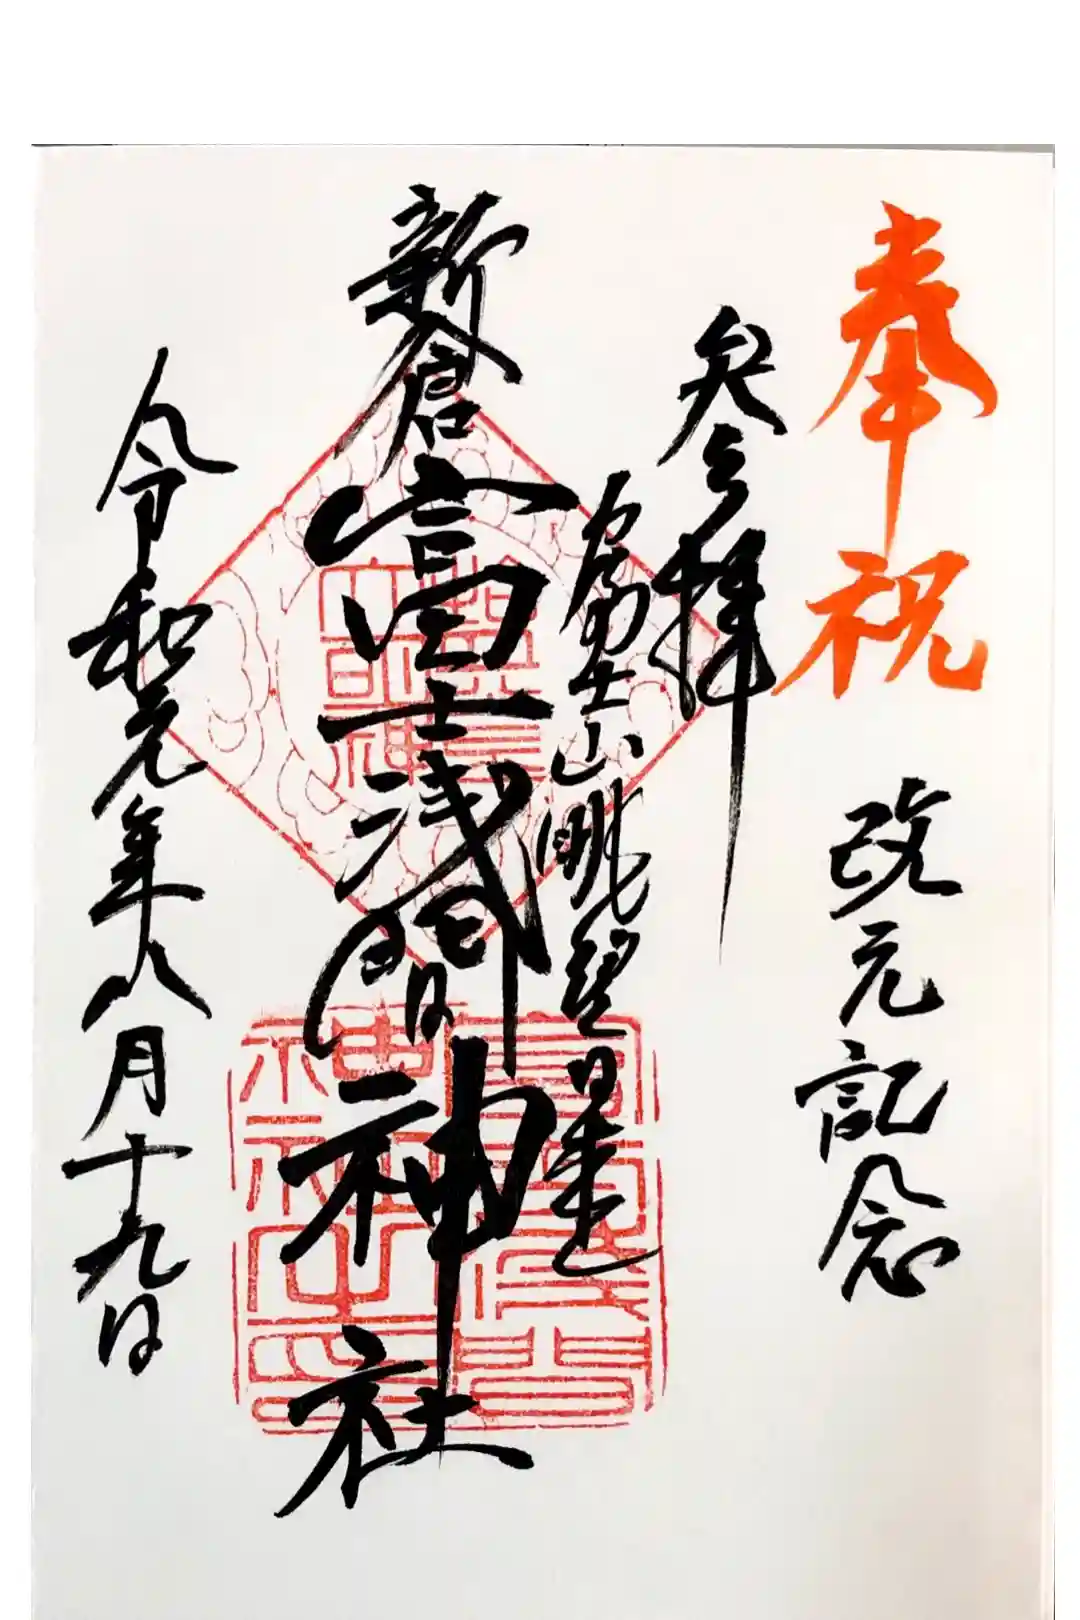 奉祝
改元記念
参拝
富士山眺望日本一
新倉富士浅間神社
令和元年八月十九日